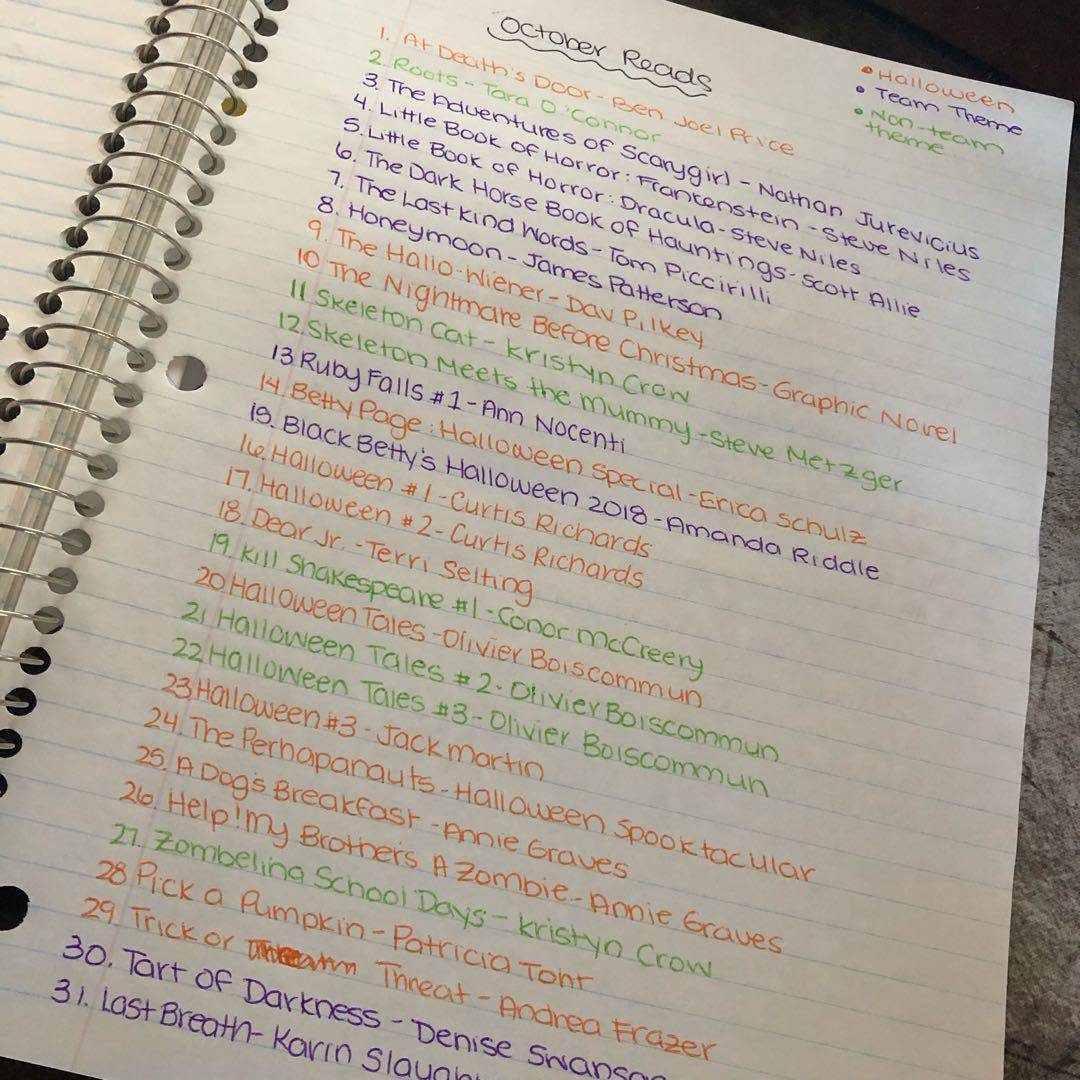 October Reads
• Halloween
• Team Theme
• Non-team
theme
1. At Death's Door - Ben Joel Price
2. Roots - Tara O'Connor
3. The Adventures of Scarygirl - Nathan Jurevicius
4. Little Book of Horror: Frankenstein - Steve Niles
5. Little Book of Horror: Dracula - Steve Niles
6. The Dark Horse Book of Hauntings - Scott Allie
7. The Last Kind Words - Tom Piccirilli
8. Honeymoon - James Patterson
9. The Hallo-Wiener - Dav Pilkey
10 The Nightmare Before Christmas - Graphic Novel
11 Skeleton Cat - Kristyn Crow
12. Skeleton Meets the Mummy - Steve Metzger
13 Ruby Falls #1 - Ann Nocenti
14 Betty Page: Halloween Special - Erica Schulz
15. Black Betty's Halloween 2018 - Amanda Riddle
16. Halloween #1 - Curtis Richards
17. Halloween #2 - Curtis Richards
18. Dear Jr. - Terri Selting
19. Kill Shakespeare #1 - Conor McCreery
20 Halloween Tales - Olivier Boiscommun
21 Halloween Tales #2 - Olivier Boiscommun
22 Halloween Tales #3 - Olivier Boiscommun
23 Halloween #3 - Jack Martin
24. The Perhapanauts - Halloween Spooktacular
25. A Dog's Breakfast - Annie Graves
26. Help! My Brother's A Zombie - Annie Graves
27. Zombelina School Days - Kristyn Crow
28 Pick a Pumpkin - Patricia Toht
29. Trick or Threat - Andrea Frazer
30. Tart of Darkness - Denise Swanso
31. Last Breath - Karin Slaugh